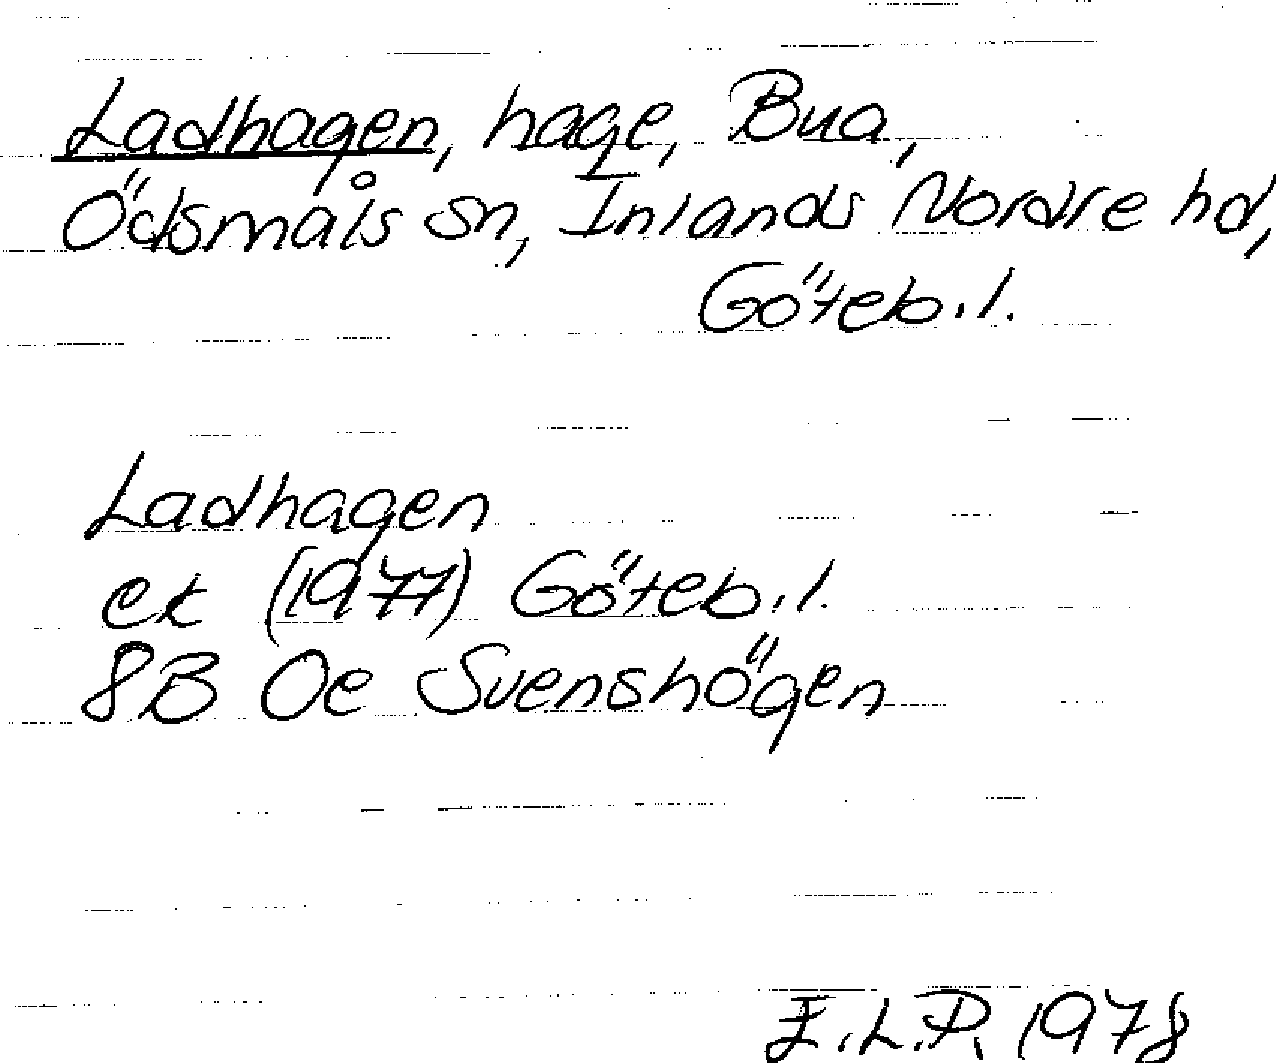 Ladhagen, hage, Bua,
Ödsmåls sn, Inlands Nordre hd,
Göteb.l.
Ladhagen
ek (1977) Göteb.l.
8B 0e Svenshögen
E.L.P. 1978